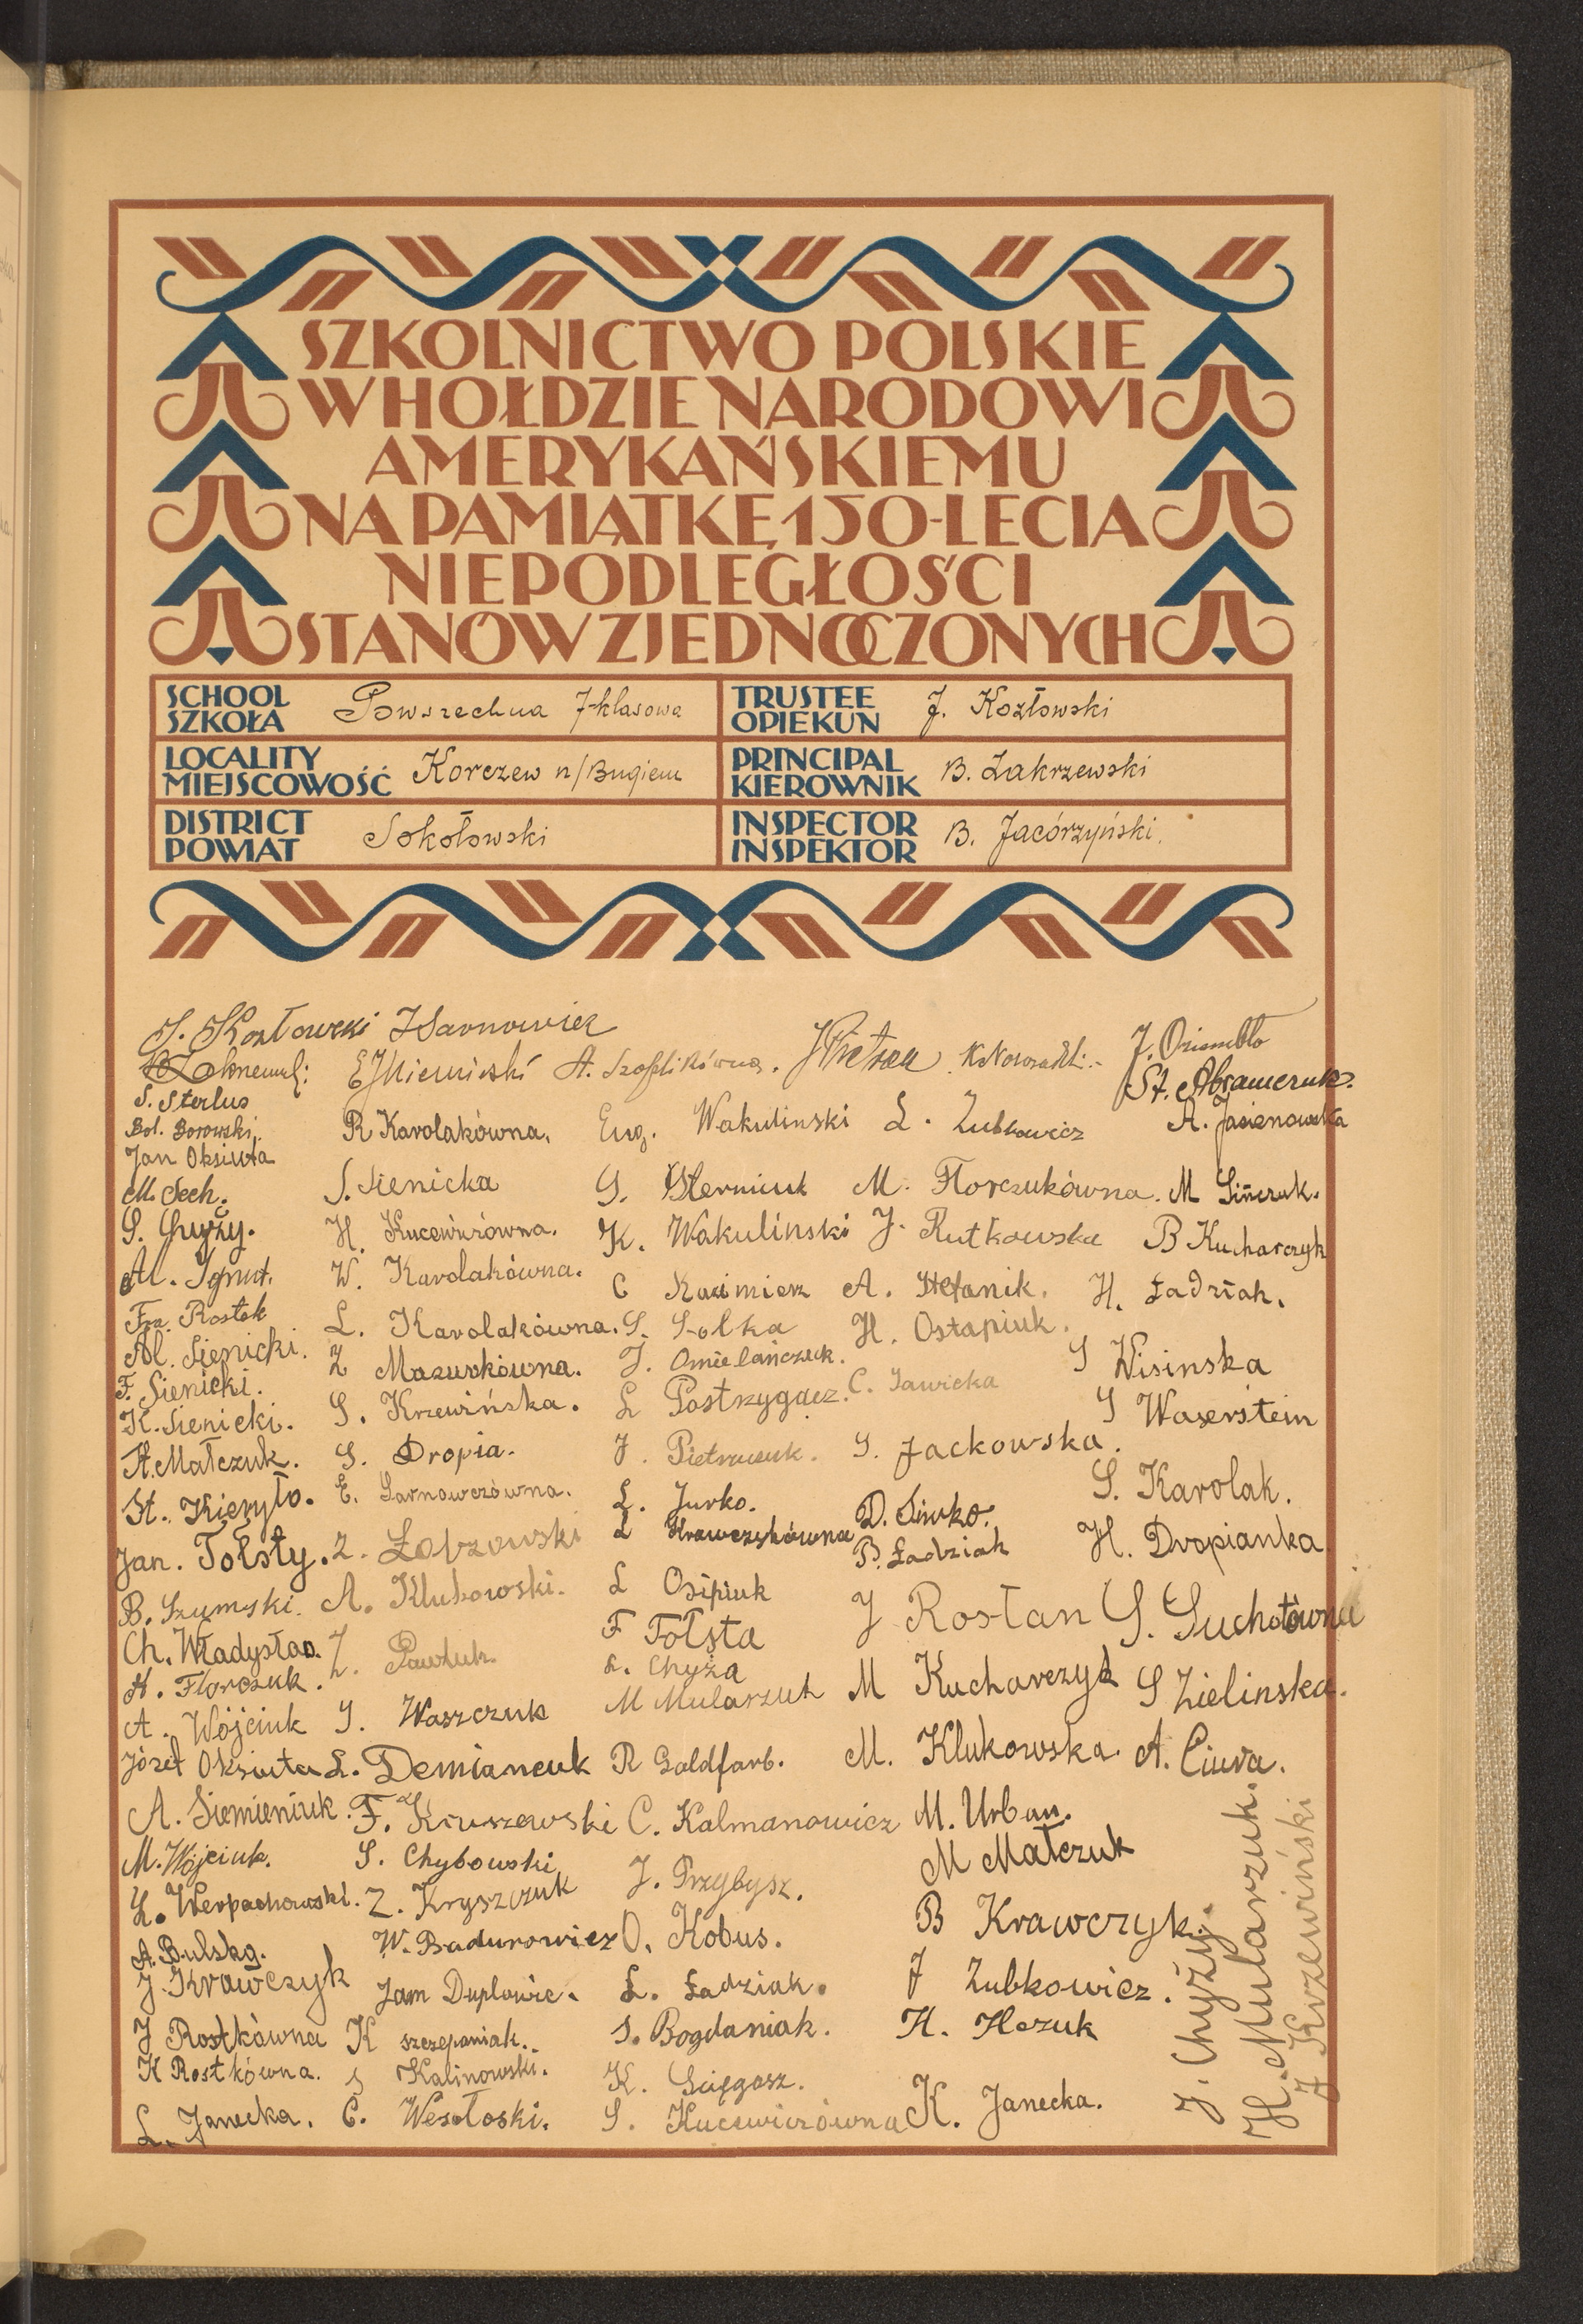 SZKOLNICTWO POLSKIE
W HOŁDZIE NARODOWI
AMERYKAŃSKIEMU
NA PAMIĄTKĘ 150-LECIA
NIEPODLEGŁOŚCI
STANÓW ZJEDNOCZONYCH
SCHOOL SZKOŁA Powszechna 7-klasowa
TRUSTEE OPIEKUN J. Kozłowski
LOCALITY MIEJSCOWOŚĆ Korczew n/Bugiem
PRINCIPAL KIEROWNIK B. Zakrzewski
DISTRICT POWIAT Sokołowski
INSPECTOR INSPEKTOR B. Jacórzyński.
J. Kozłowski
K. Nowosadki
St. Abramczuk.
S. Sterlus
Bol. Borowski.
Jan Oksiuta
M. Sech.
S. Chyży.
Al. Ignut.
Fra. Rostek
Al. Sienicki.
F. Sienicki.
K. Sienicki.
H. Małczuk.
St. Kieryło.
Jan. Tołsty.
B. Szymski.
Ch. Władysław.
H. Florczuk.
A. Wójciuk
Józef Oksiuta
A. Siemieniuk.
M. Wójciuk.
L. Wierpachowski.
A. Bulska.
J. Krawczyk
J Rostkówna
K Rostkówna.
L. Janecka.
R Karolakówna.
S. Sienicka
H. Kucewiczówna.
W. Karolakówna.
L. Karolakówna.
Z Mazurkówna.
S. Krzewińska.
S. Dropia.
E. Sarnowczówna.
A. Klukowski.
Z. Pawluk
S. Waszczuk
L. Demianeuk
F. Kruszewski
S. Chybowski
Z. Kryszczuk
W. Badurowicz
K szczepaniak.
S Kalinowski.
C. Wesołoski.
Eug. Wakulinski
K. Wakulinski
C Kazimierz
S. Solka
J. Omielańczuk.
L Postrzygacz.
J. Pietraszuk.
L. Jurko.
L Krawczykówna
L Osipiuk
F Tołsta
L. Chyża
M Mularzuk
R Goldfarb.
C. Kalmanowicz
J. Przybysz.
O. Kobus.
L. Ładziak.
S. Bogdaniak.
K. Ścięgosz.
S. Kucewiczówna
L. Zubkowicz
M. Florczukówna.
J. Rutkowska
A. Stefanik.
H. Ostapiuk.
C. Sawicka
S. Jackowska.
D. Siwko.
B. Ładziak
J Rostan
M Kucharczyk
M. Klukowska.
M. Urban.
M Małczuk
B Krawczyk.
J Zubkowicz.
H. Hozuk
K. Janecka.
A. Jasienowska
M Sińczuk.
B Kucharczyk
H. Ładziak.
S Wisinska
S Waserstein
S. Karolak.
H. Dropianka
S. Suchotówna
S Zielinska.
A. Ciura.
J. Chyży.
H. Mularzuk.
J Krzewiński